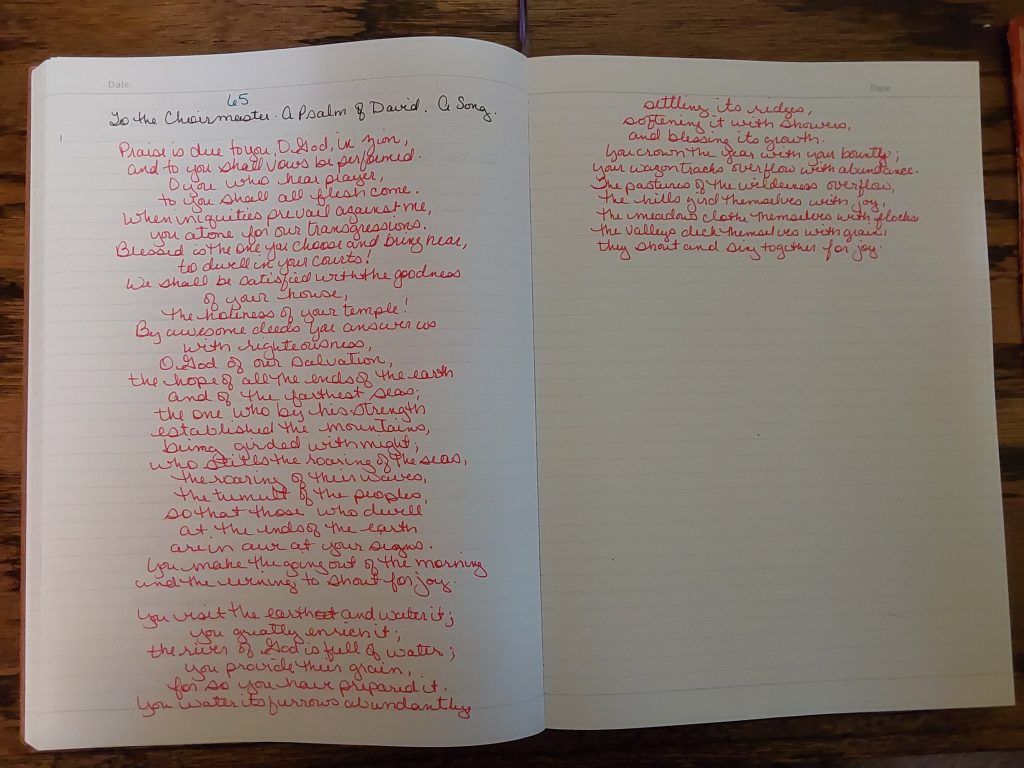 Date
65
To the Choirmaster. A Psalm of David. A Song.
Praise is due to you, O God, in Zion,
and to you shall vows be performed.
O you who hear prayer,
to you shall all flesh come.
When iniquities prevail against me,
you atone for our transgressions.
Blessed is the one you choose and bring near,
to dwell in your courts!
We shall be satisfied with the goodness
of your house,
the holiness of your temple!
By awesome deeds you answer us
with righteousness,
O God of our salvation,
the hope of all the ends of the earth
and of the farthest seas;
the one who by his strength
established the mountains,
being girded with might;
who stills the roaring of the seas,
the roaring of their waves,
the tumult of the peoples,
so that those who dwell
at the ends of the earth
are in awe at your signs.
You make the going out of the morning
and the evening to shout for joy.
You visit the earth and water it;
you greatly enrich it;
the river of God is full of water;
you provide their grain,
for so you have prepared it.
You water its furrows abundantly
Date
settling its ridges,
softening it with showers,
and blessing its growth.
You crown the year with your bounty;
your wagon tracks overflow with abundance.
The pastures of the wilderness overflow,
the hills gird themselves with joy,
the meadows clothe themselves with flocks
the valleys deck themselves with grain,
they shout and sing together for joy.